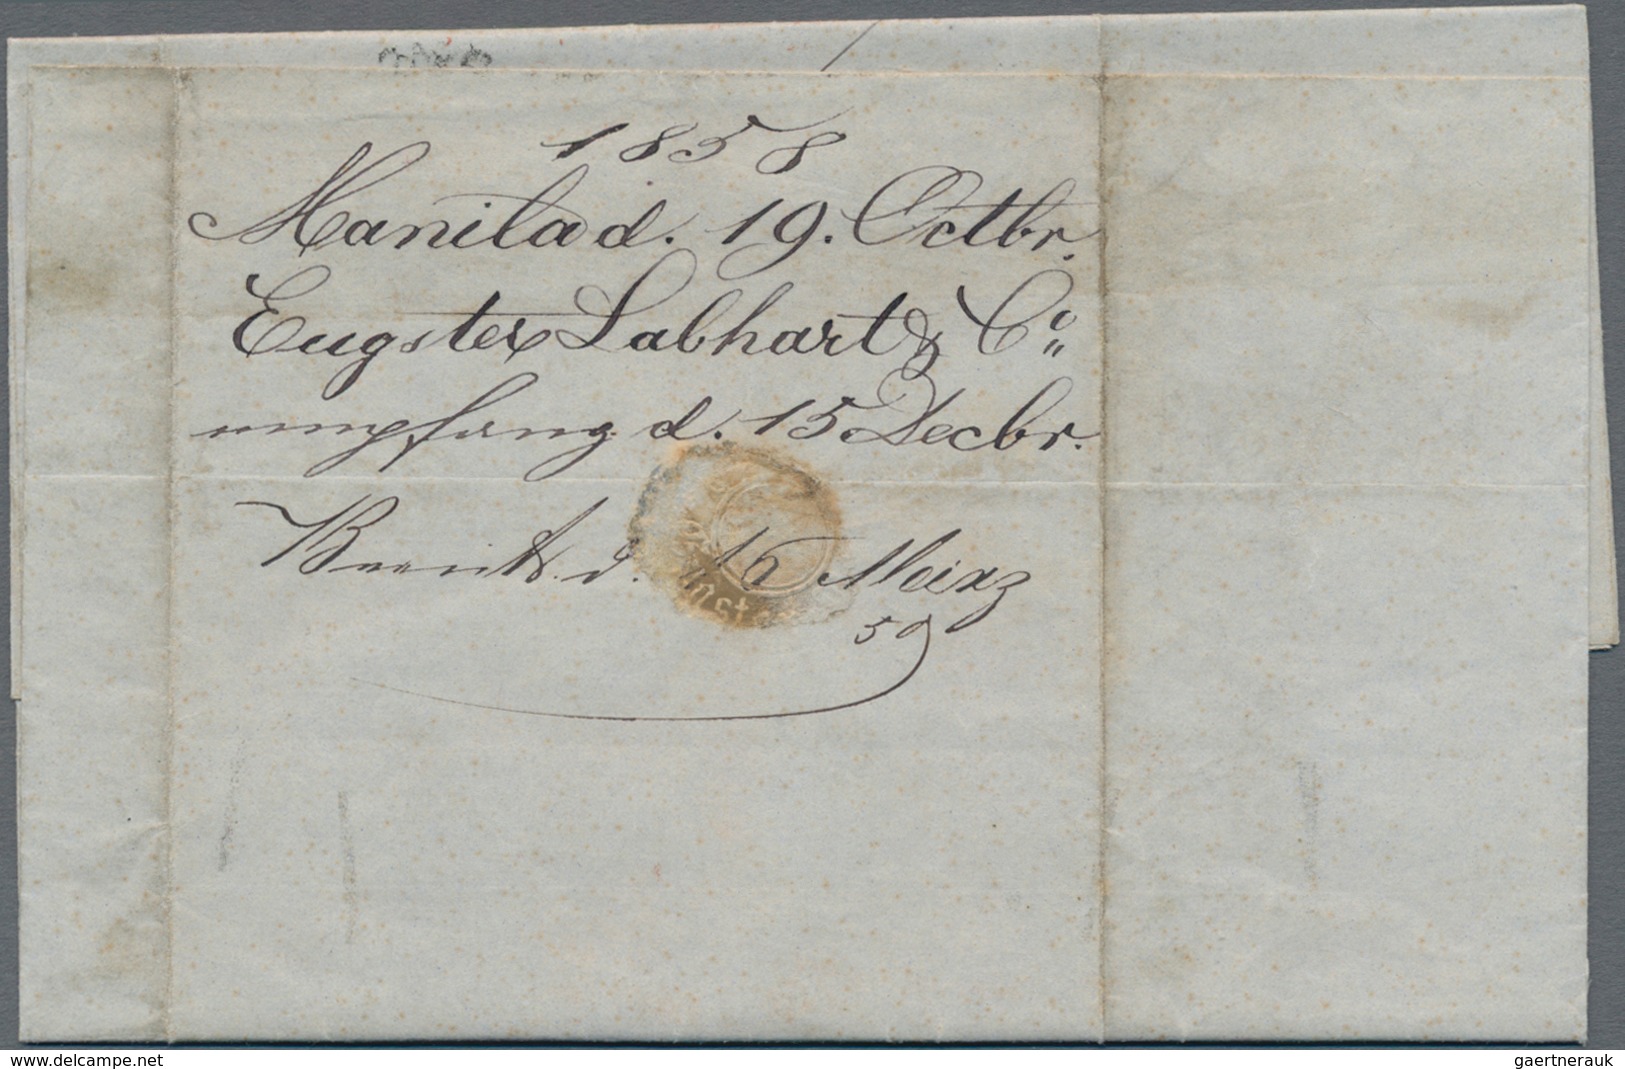 1858
Manila d. 19. Octbr.
Eugster Labhart & Co.
empfang d. 15 Decbr.
d. 16 März
59
www.delcampe.net
gaertnerauk